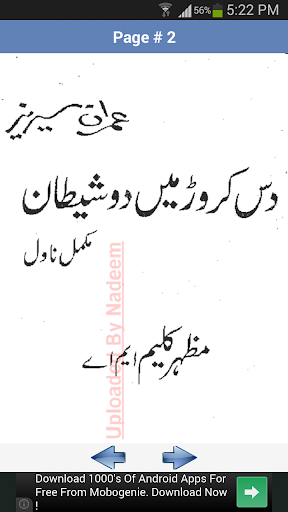 56% 5:22 PM
Page # 2
عمران سیریز
دس کروڑ میں دو شیطان
مکمل ناول
مظہر کلیم ایم اے
Uploaded By Nadeem
Download 1000's Of Android Apps For
Free From Mobogenie. Download Now
!